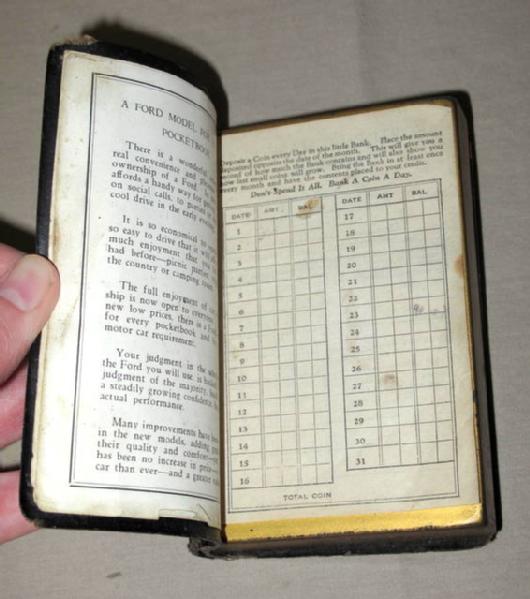 A FORD MODEL FOR
POCKETBOOK
There is a wonderful
real convenience and
ownership of a Ford
affords a handy way for
on social calls, to
cool drive in the early
It is so economical to
so easy to drive that it will
much enjoyment that you
had before—picnic parties
the country or camping
The full enjoyment of
ship is now open to everyone
new low prices, there is a
for every pocketbook and
motor car requirement.
Your judgment in the
the Ford you will use is
judgment of the majority,
a steadily growing confidence
actual performance.
Many improvements have been
in the new models, adding
their quality and comfort—
has been no increase in price—
car than ever—and a greater
Deposit a Coin every Day in this little Bank. Place the amount
deposited opposite the date of the month. This will give you a
record of how much the Bank contains and will also show you
how fast small coins will grow. Bring the Bank in at least once
every month and have the contents placed to your credit.
Don't Spend It All. Bank A Coin A Day.
DATE AMT. BAL. DATE AMT BAL
1 17
2 18
3 19
4 20
5 21
6 22
7 23
8 24
9 25
10 26
11 27
12 28
13 29
14 30
15 31
16
TOTAL COIN